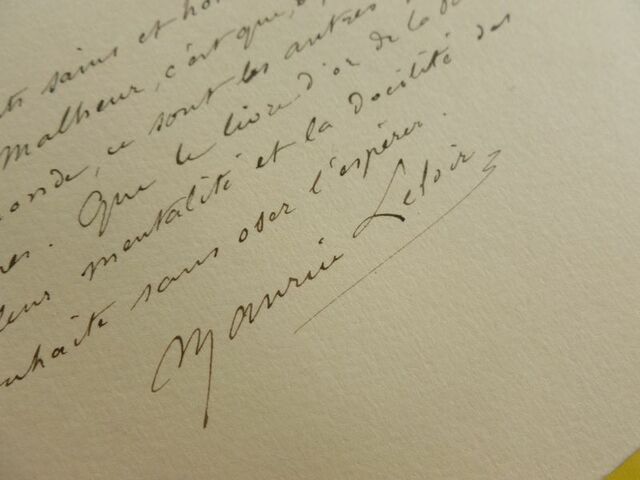 sains et
Malheur, c'est que,
ce sont les autres
Que le livre d'or de la
mentalité et la docilité des
sans oser l'espérer.
Maurice Leloir